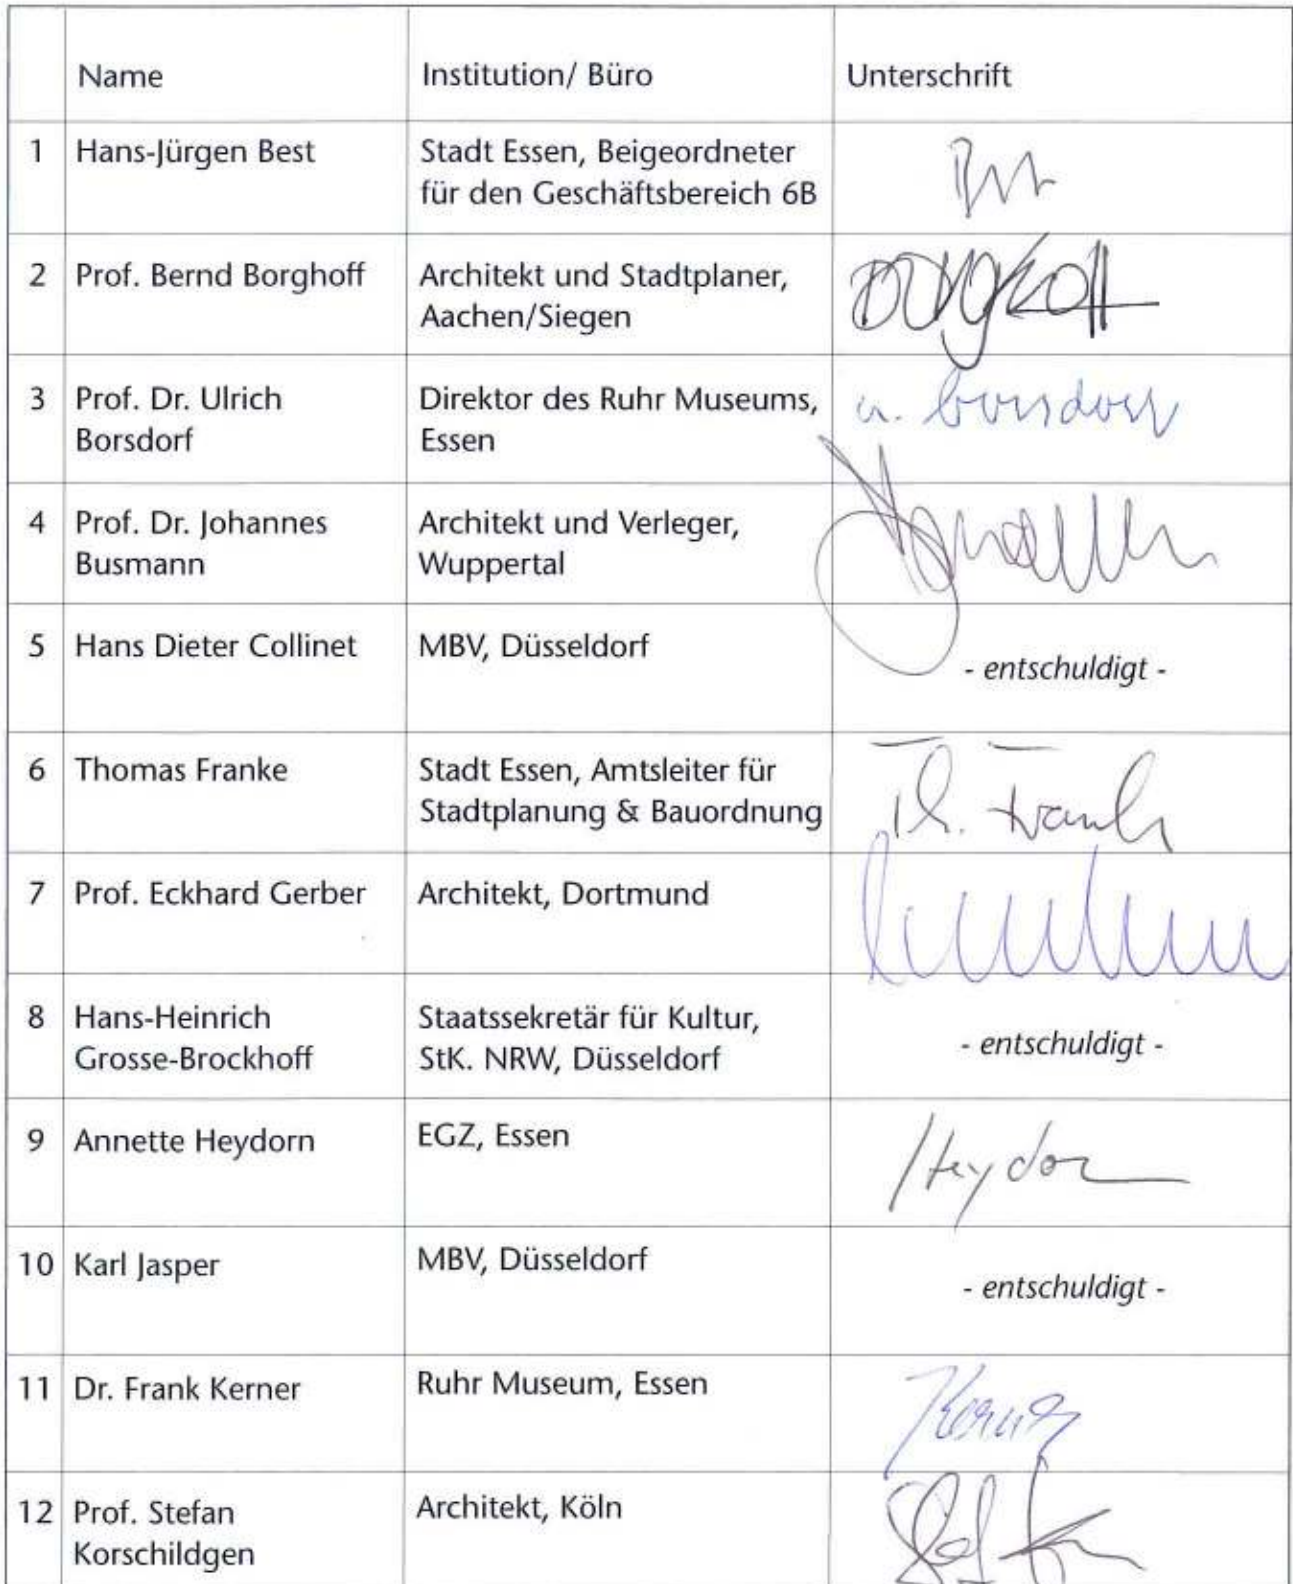 Name Institution/ Büro Unterschrift
1 Hans-Jürgen Best Stadt Essen, Beigeordneter
für den Geschäftsbereich 6B
2 Prof. Bernd Borghoff Architekt und Stadtplaner,
Aachen/Siegen
3 Prof. Dr. Ulrich Direktor des Ruhr Museums, u. borsdorf
Borsdorf Essen
4 Prof. Dr. Johannes Architekt und Verleger,
Busmann Wuppertal
5 Hans Dieter Collinet MBV, Düsseldorf
- entschuldigt -
6 Thomas Franke Stadt Essen, Amtsleiter für
Stadtplanung & Bauordnung Th. Franke
7 Prof. Eckhard Gerber Architekt, Dortmund
8 Hans-Heinrich Staatssekretär für Kultur,
Grosse-Brockhoff StK. NRW, Düsseldorf - entschuldigt -
9 Annette Heydorn EGZ, Essen
Heydorn
10 Karl Jasper MBV, Düsseldorf
- entschuldigt -
11 Dr. Frank Kerner Ruhr Museum, Essen
Kerner
12 Prof. Stefan Architekt, Köln
Korschildgen